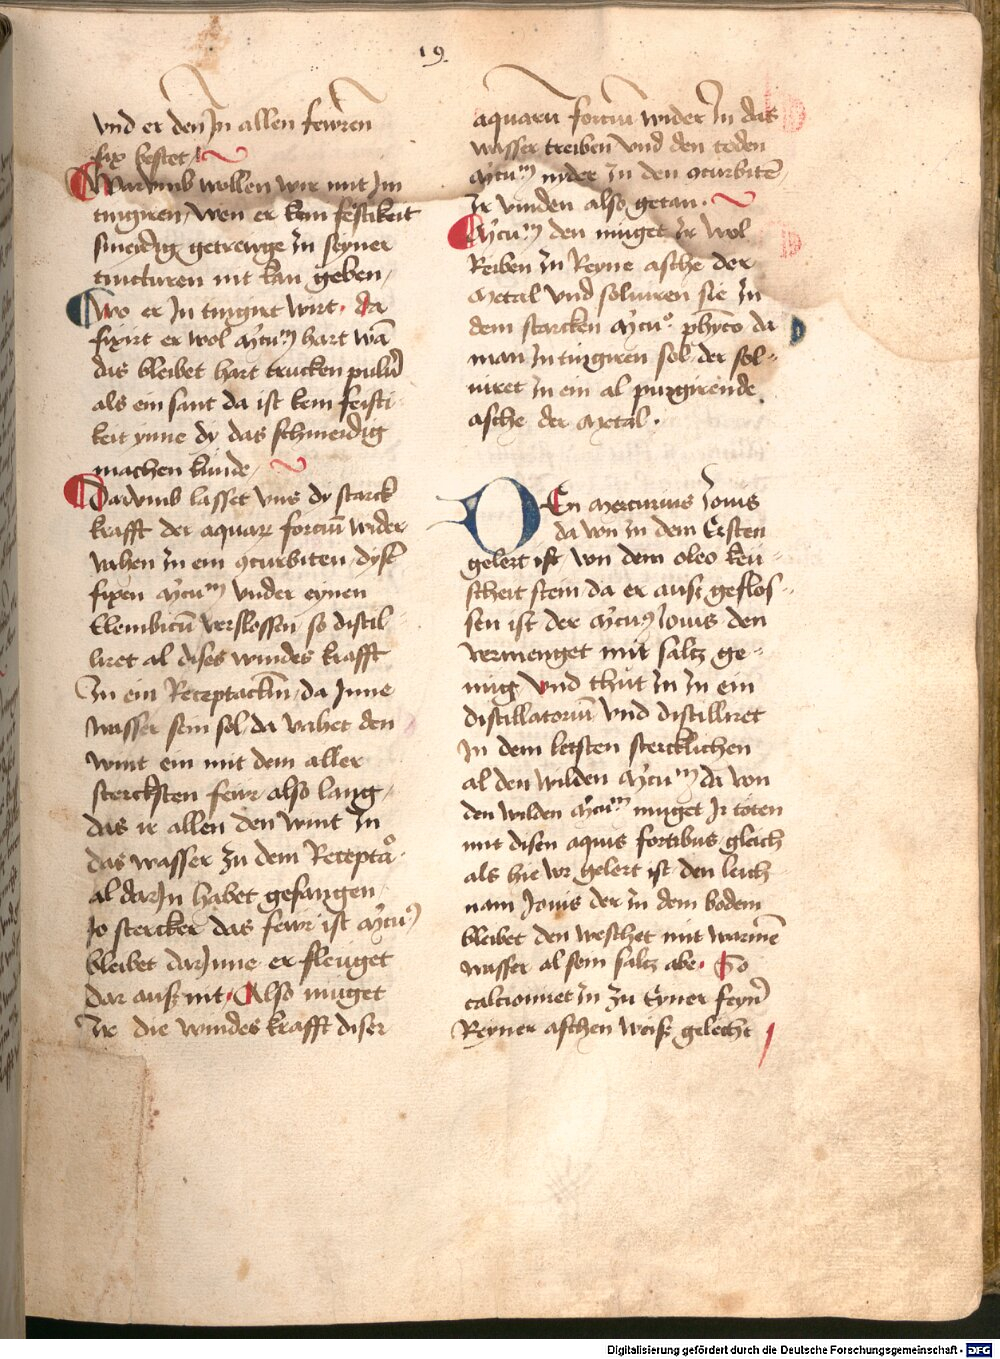 19
vnd er den Jn allen fewren
fix bestet
Warvmb wollen wir mit Jm
tingiren, wen er kein festikeit
smeidig getrewge Jn seyner
tincturen nit kan geben,
wo er Jn tingirt wirt. da
fixirt er wol hart wan
das bleibet hart trucken puluer
als ein sant da ist kein feisti
keit ynne dy das schmeidig
machen kunde,
Darvmb lasset vns dy starck
krafft der aquar fortiu wider
vahen Jn ein curbiten dyse
fixen vnder eynen
Elembicu verslossen so distil
liret al dises windes krafft
Jn ein Receptackm, da Jnne
wasser sein sol, da vahet den
wint ein mit dem aller
stercksten fewr also lang,
das ir allen den wint Jn
das wasser zu dem Recepta
al darJn habet gefangen,
Jo stercker das fewr ist
bleibet darJnne er fleuget
dar auß nit. Also muget
Jr die windes krafft diser
aquaru fortiu wider Jn das
wasser treiben vnd den toden
nyder Jn den curbite,
Jr vinden also getan.
den muget Jr wol
Reiben Jn Reyne asche der
Metal vnd soluiren sie Jn
dem starcken da
man Jn tingiren sol der sol-
uiret Jn ein al purgirende
asche der Metal.
DEn Mercurius Jouis
da von Jn dem Ersten
gelert ist, von dem oleo keu-
scheit stein da er auß geflos-
sen ist der Jouis den
vermenget mit saltz ge-
nug, Vnd thut Jn Jn ein
distillatoriu vnd distilliret
Jn dem letsten stercklichen
al den wilden da von
den wilden muget Jr toten
mit disen aquis fortibus gleich
als hie vor gelert ist den leich
nam Jouis der Jn dem bodem
bleibet den weschet mit warme
wasser al sein saltz abe. So
calcioniret Jn zu Eyner feyn
Reyner aschen weiß gelecht
Digitalisierung gefördert durch die Deutsche Forschungsgemeinschaft - DFG